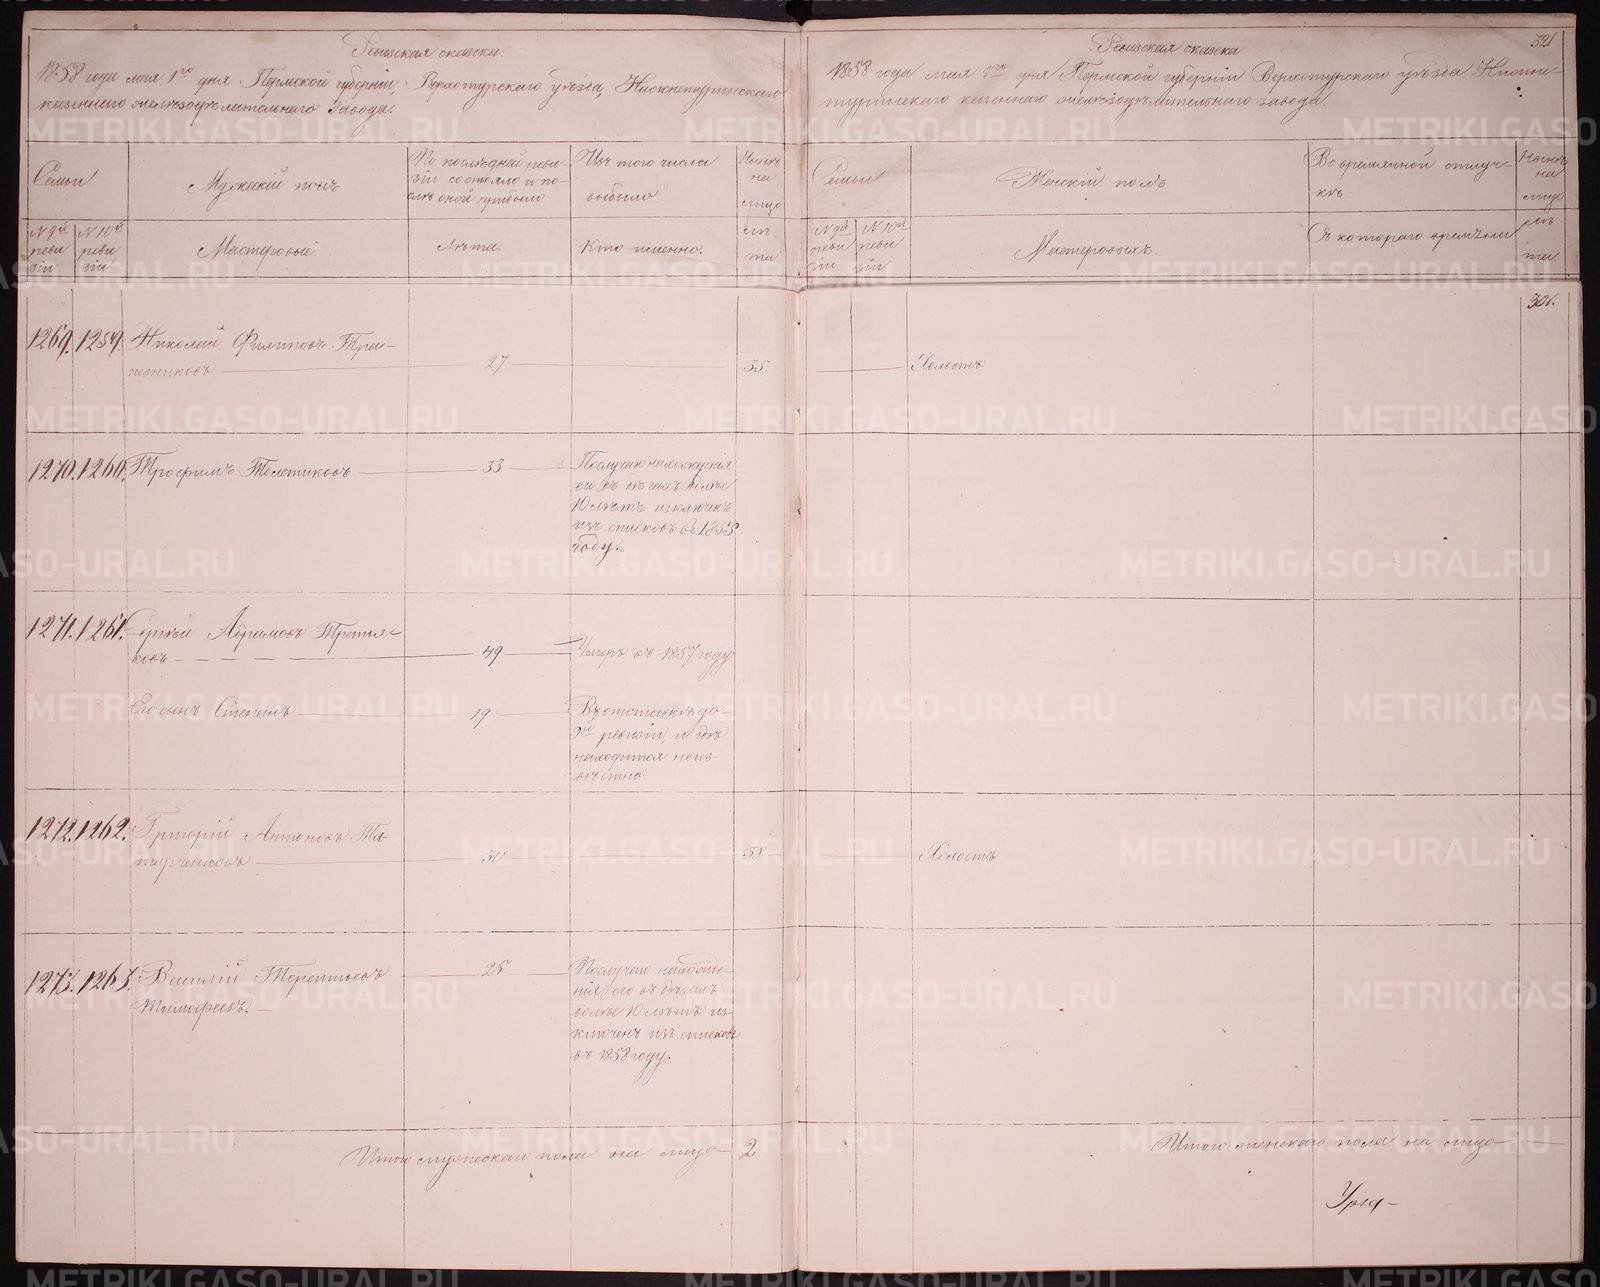 Ревизская сказка.
1858 года мая 1го дня Пермской губерніи, Верхотурскаго уѣзда, Нижнетуринскаго
казеннаго желѣзодѣлательнаго завода.
Семьи
Мужескій полъ
По послѣдней реви-
зіи состояло и по-
слѣ оной прибыло
Изъ того числа
выбыло
Нынѣ
на
лицо
№ 9й
реви
зіи
№ 10й
реви
зіи
Мастеровые.
Лѣта.
Кто именно.
лѣ
та
1269. 1259. Николай Филиповъ Тра-
пезниковъ 27 35
1270. 1260. Трофимъ Толстиковъ 33
По случаю нахожденія
его въ бѣгахъ болѣе
10 лѣтъ изключенъ
изъ списковъ въ 1855
году.
1271. 1261. Сергѣй Абрамовъ Третья-
ковъ 49 Умеръ въ 1857 году
Его сынъ Степанъ 19
Въ отставкѣ до
9й ревизіи, и гдѣ
находится неиз-
вѣстно
1272. 1262. Григорій Антоновъ
50 58
1273. 1263. Василій Терентьевъ
Тимофеевъ. 25
По случаю нахожде-
нія его въ бѣгахъ
болѣе 10 лѣтъ из-
ключенъ изъ списковъ
въ 1858 году.
Итого мужескаго пола на лицо 2
Ревизская сказка
321
1858 года мая 1го дня Пермской губерніи Верхотурскаго уѣзда Нижне-
туринскаго казеннаго желѣзодѣлательнаго завода.
Семьи
Женскій полъ
Во временной отлуч-
кѣ
Нынѣ
на
лицо
№ 9й
реви
зіи
№ 10й
реви
зіи
Мастеровыхъ.
Съ котораго времени
лѣ
та
301.
Холостъ
Холостъ
Итого женскаго пола на лицо
METRIKI.GASO-URAL.RU